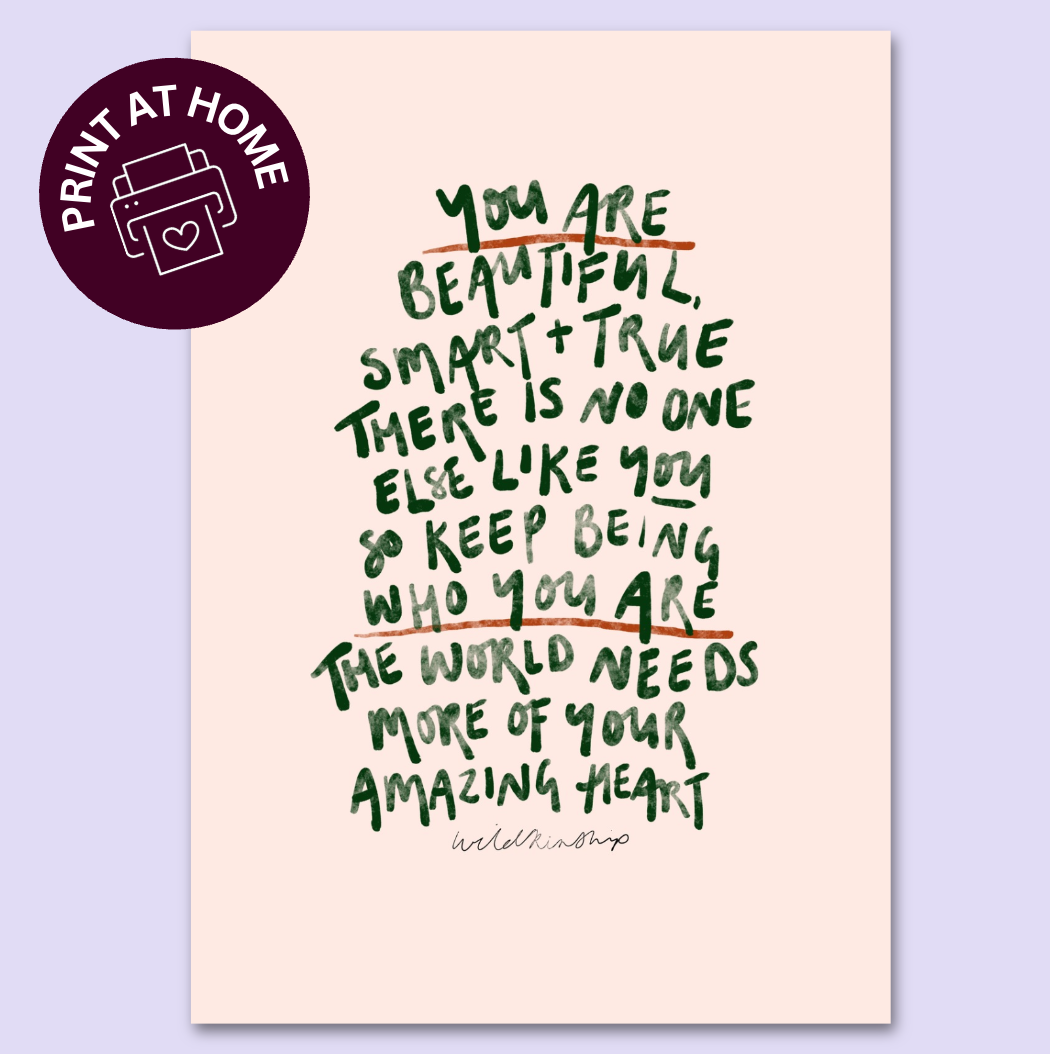 PRINT AT HOME
YOU ARE
BEAUTIFUL,
SMART + TRUE
THERE IS NO ONE
ELSE LIKE YOU
SO KEEP BEING
WHO YOU ARE
THE WORLD NEEDS
MORE OF YOUR
AMAZING HEART
wildkinship